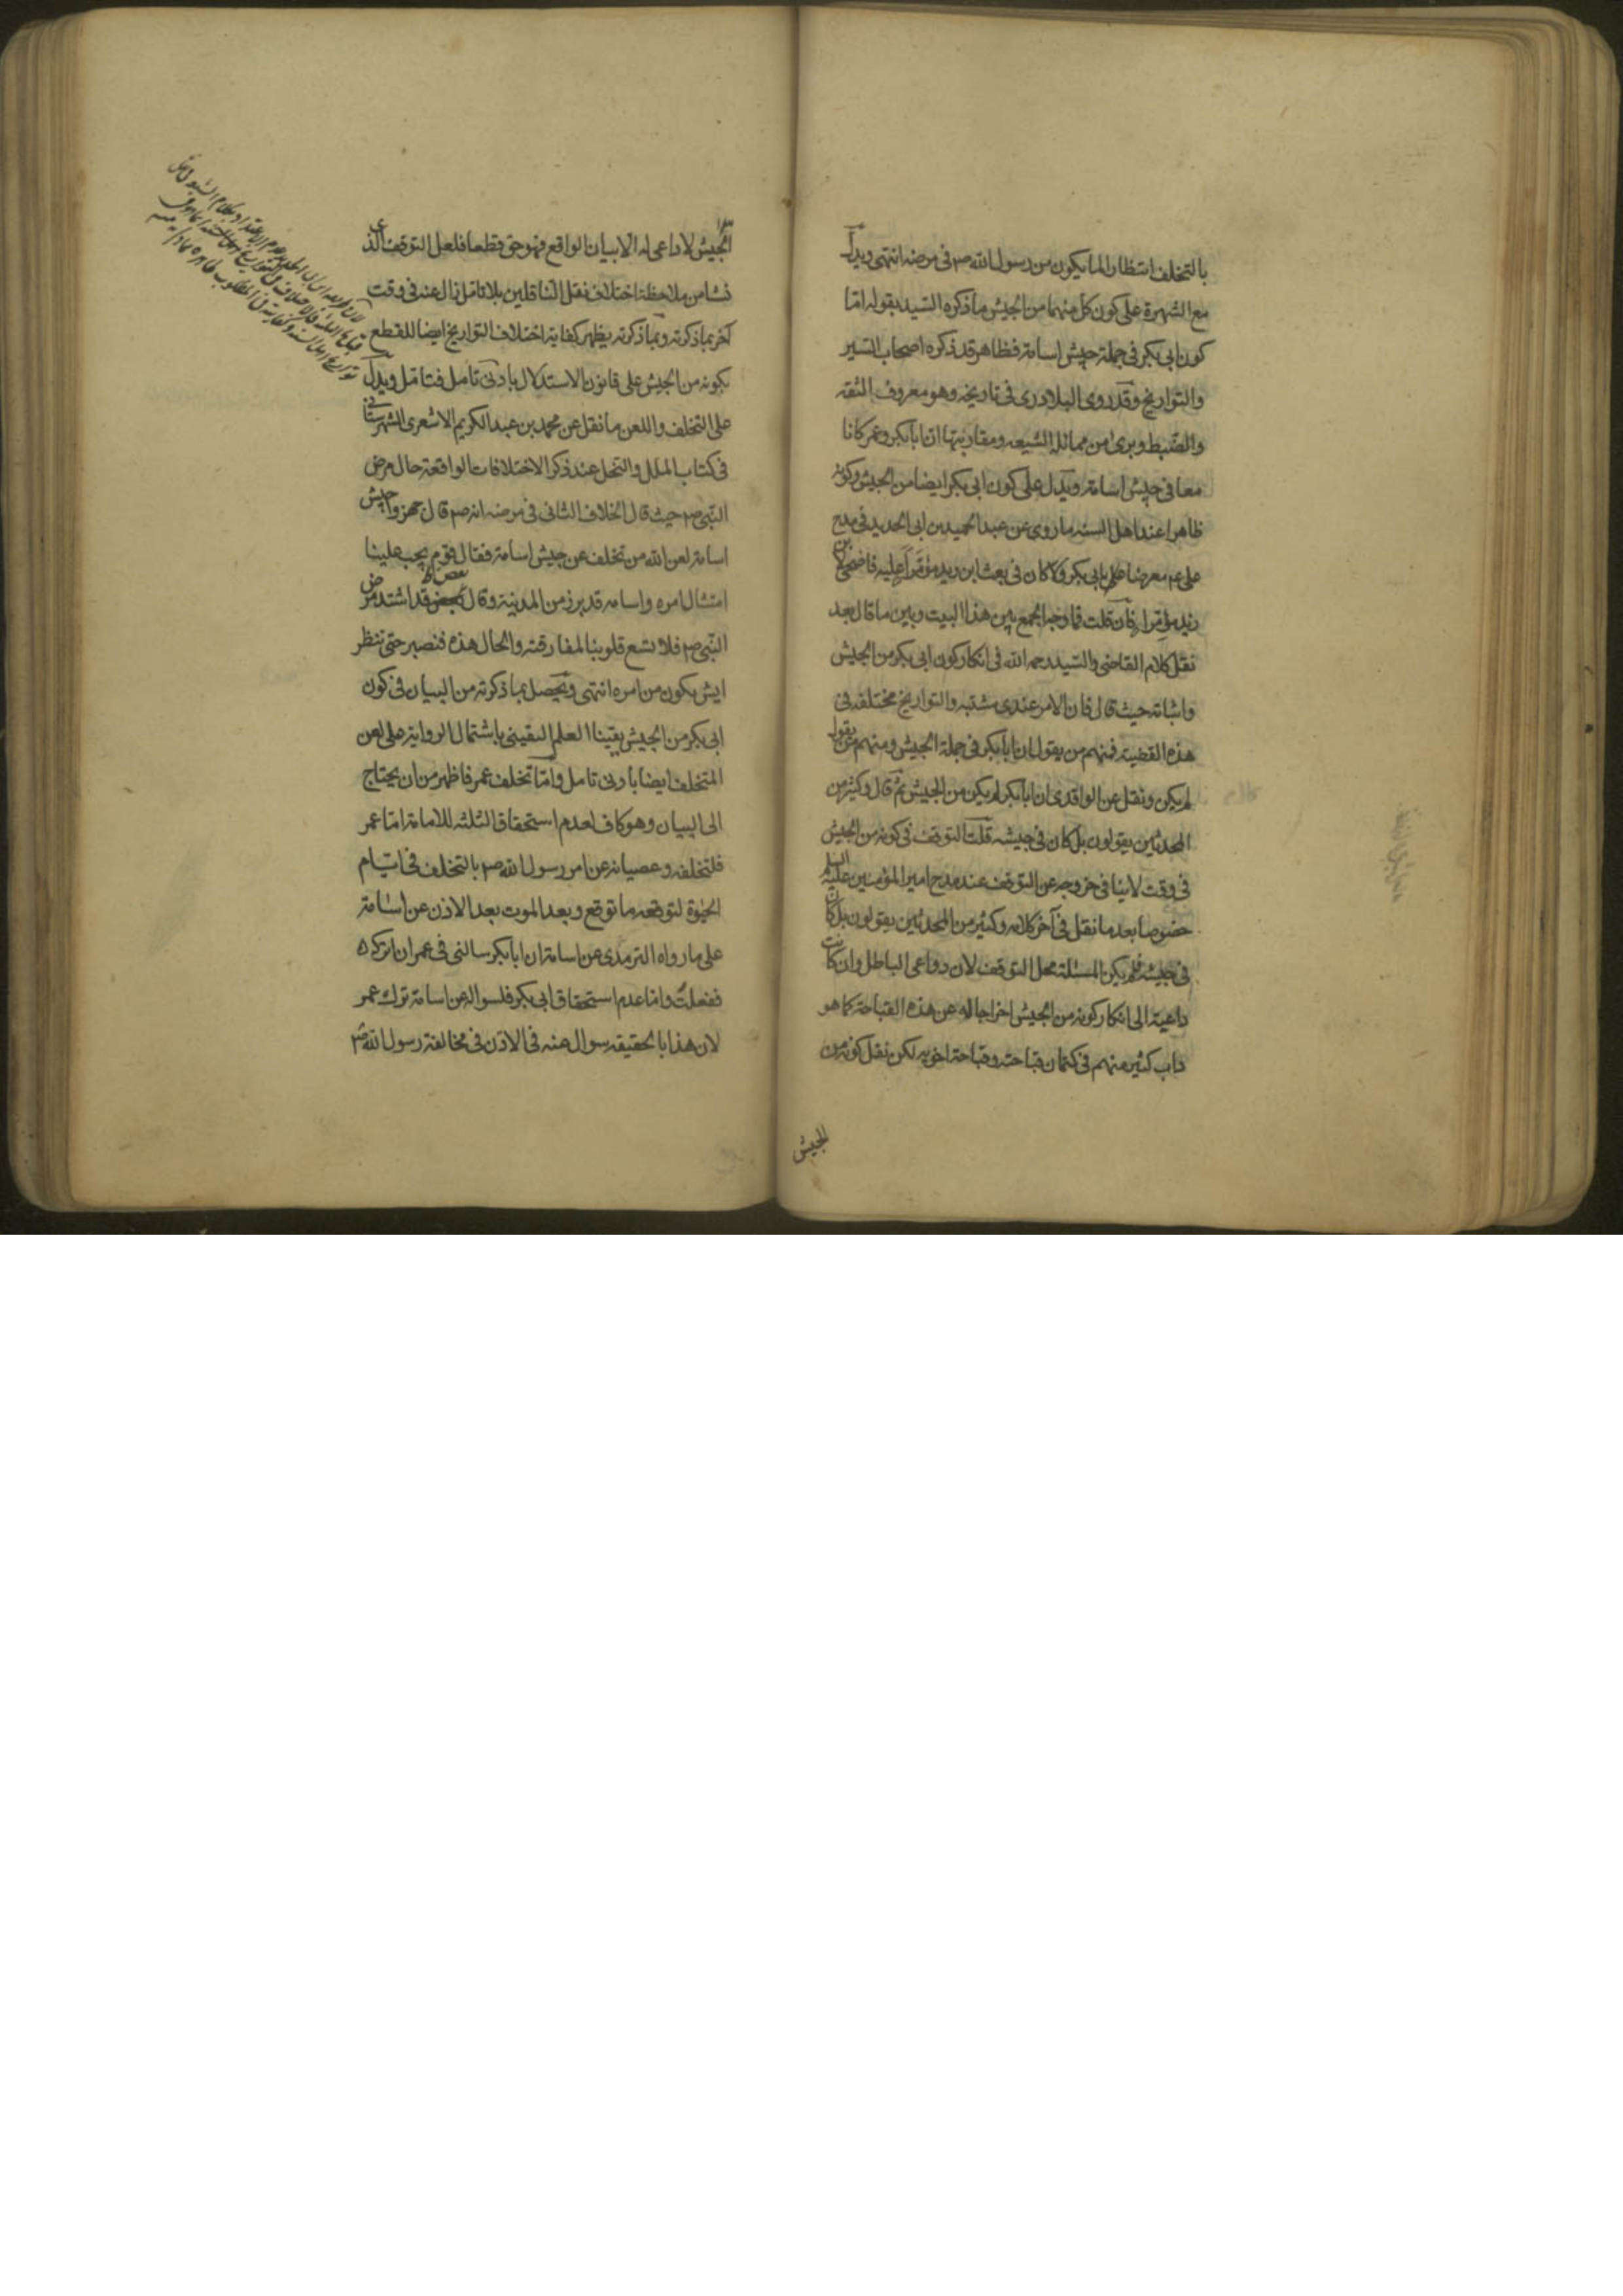 بالتخلف انتظارا لما يكون من رسول الله صم فى مرضه انتهى ويدل
مع الشهرة على كون كل منهما من الجيش ما ذكره السيد بقوله اما
كون ابى بكر فى جملة جيش اسامة فظاهر قد ذكره اصحاب السير
والتواريخ وقد روى البلادرى فى تاريخه وهو معروف الثقه
والضبط وبرئ من ممائلة الشيعه ومقاربتها ان ابا بكر وعمر كانا
معا فى جيش اسامة ويدل على كون ابى بكر ايضا من الجيش وكونه
ظاهرا عند اهل السنه ما روى عن عبد الحميد بن ابى الحديد فى مدح
على ع معرضا على ابى بكر ولا كان فى بعث ابن زيد مؤمرا عليه فاضحى لابن
زيد مؤمرا فان قلت فما وجه الجمع بين هذا البيت وبين ما قال بعد
نقل كلام القاضى والسيد رحمه الله فى انكار كون ابى بكر من الجيش
واثباته حيث قال فان الامر عندى مشتبه والتواريخ مختلفه فى
هذه القضية فمنهم من يقول ان ابا بكر فى جملة الجيش ومنهم من يقول
لم يكن ونقل عن الواقدى ان ابا بكر لم يكن من الجيش ثم قال وكثير من
المحدثين يقولون بل كان فى جيشه قلت التوقف فى كونه من الجيش
فى وقت لا ينافى خروجه عن التوقف عند مدح امير المؤمنين عليه السلم
خصوصا بعد ما نقل فى آخر كلامه وكثير من المحدثين يقولون بل كان
فى جيشه فلم يكن المسئلة محل التوقف لان دواعى الباطل وان كانت
داعية الى انكار كونه من الجيش اخراجا له عن هذه القباحة كما هو
داب كثير منهم فى كتمان قباحته وقباحة اخويه لكن نقل كونه من
الجيش
الجيش لا داعى له الا بيان الواقع فهو حق قطعا فلعل التوقف الذى
نشا من ملاحظة اختلاف نقل الناقلين بلا تامل زال عنه فى وقت
آخر بما ذكرته وبما ذكرته يظهر كفاية اختلاف التواريخ ايضا للقطع
بكونه من الجيش على قانون الاستدلال بادنى تامل فتامل ويدل
على التخلف واللعن ما نقل عن محمد بن عبد الكريم الاشعرى الشهرستانى
فى كتاب الملل والنحل عند ذكر الاختلافات الواقعة حال مرض
النبى صم حيث قال الخلاف الثانى فى مرضه انه صم قال جهزوا جيش
اسامة لعن الله من تخلف عن جيش اسامة فقال قوم يجب علينا
امتثال امره واسامه قد برز من المدينة وقال بعض قد اشتد مرض
النبى صم فلا تسع قلوبنا لمفارقته والحال هذه فنصبر حتى ننظر
ايش يكون من امره انتهى ويحصل بما ذكرته من البيان فى كون
ابى بكر من الجيش يقينا العلم اليقينى باشتمال الرواية على لعن
المتخلف ايضا بادنى تامل واما تخلف عمر فاظهر من ان يحتاج
الى البيان وهو كاف لعدم استحقاق الثلثه للامامة اما عمر
فلتخلفه وعصيانه عن امر رسول الله صم بالتخلف فى ايام
الحيوة لتوقعه ما توقع وبعد الموت بعد الاذن عن اسامة
على ما رواه الترمذى عن اسامة ان ابا بكر سالنى فى عمر ان اتركه
ففعلت واما عدم استحقاق ابى بكر فلسواله عن اسامة ترك عمر
لان هذا بالحقيقه سوال عنه فى الاذن فى مخالفة رسول الله صم